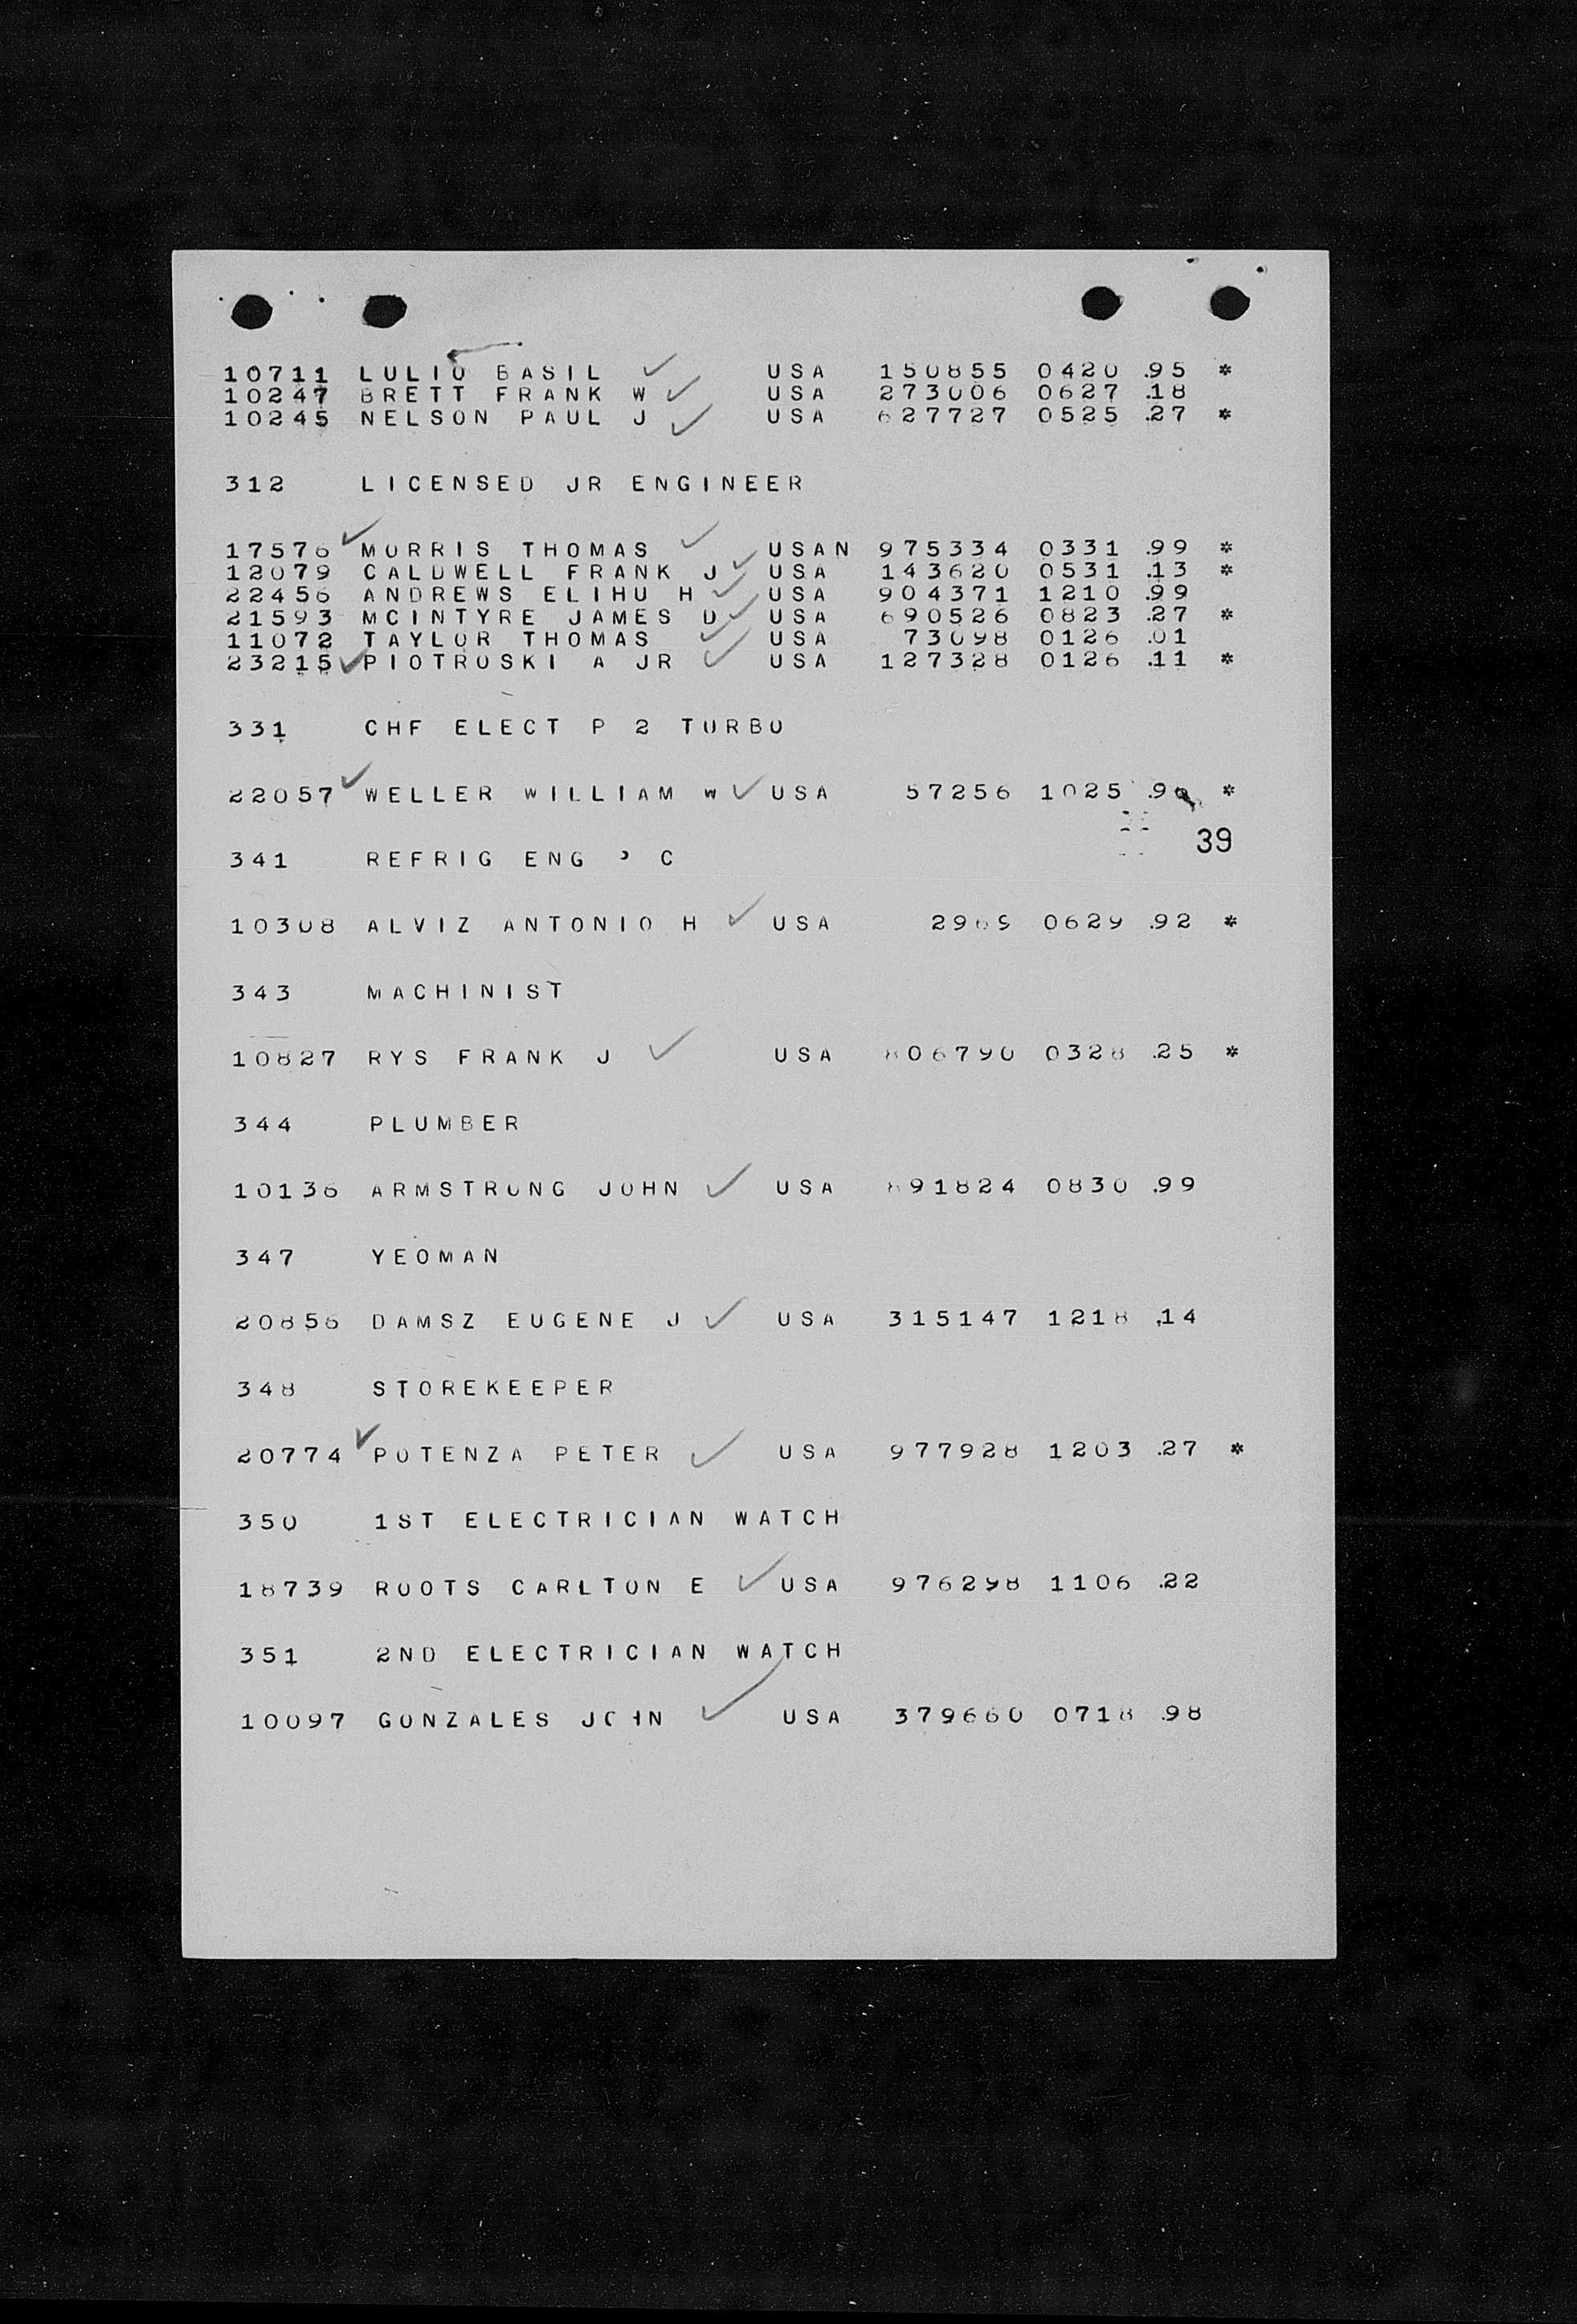 10711 LULIO BASIL ✓ USA 150855 0420 .95 *
10247 BRETT FRANK W ✓ USA 273006 0627 .18
10245 NELSON PAUL J ✓ USA 627727 0525 .27 *
312 LICENSED JR ENGINEER
17576 ✓ MORRIS THOMAS ✓ USAN 975334 0331 .99 *
12079 CALDWELL FRANK J ✓ USA 143620 0531 .13 *
22456 ANDREWS ELIHU H ✓ USA 904371 1210 .99
21593 MCINTYRE JAMES D ✓ USA 690526 0823 .27 *
11072 TAYLOR THOMAS ✓ USA 73098 0126 .01
23215 ✓ PIOTROSKI A JR ✓ USA 127328 0126 .11 *
331 CHF ELECT P 2 TURBO
22057 ✓ WELLER WILLIAM W ✓ USA 57256 1025 *
39
341 REFRIG ENG C
10308 ALVIZ ANTONIO H ✓ USA 0629 .92 *
343 MACHINIST
10827 RYS FRANK J ✓ USA 806790 0328 .25 *
344 PLUMBER
10136 ARMSTRONG JOHN ✓ USA 891824 0830 .99
347 YEOMAN
20856 DAMSZ EUGENE J ✓ USA 315147 1218 .14
348 STOREKEEPER
20774 ✓ POTENZA PETER ✓ USA 977928 1203 .27 *
350 1ST ELECTRICIAN WATCH
18739 ROOTS CARLTON E ✓ USA 976298 1106 .22
351 2ND ELECTRICIAN WATCH
10097 GONZALES JOHN ✓ USA 379660 0718 .98